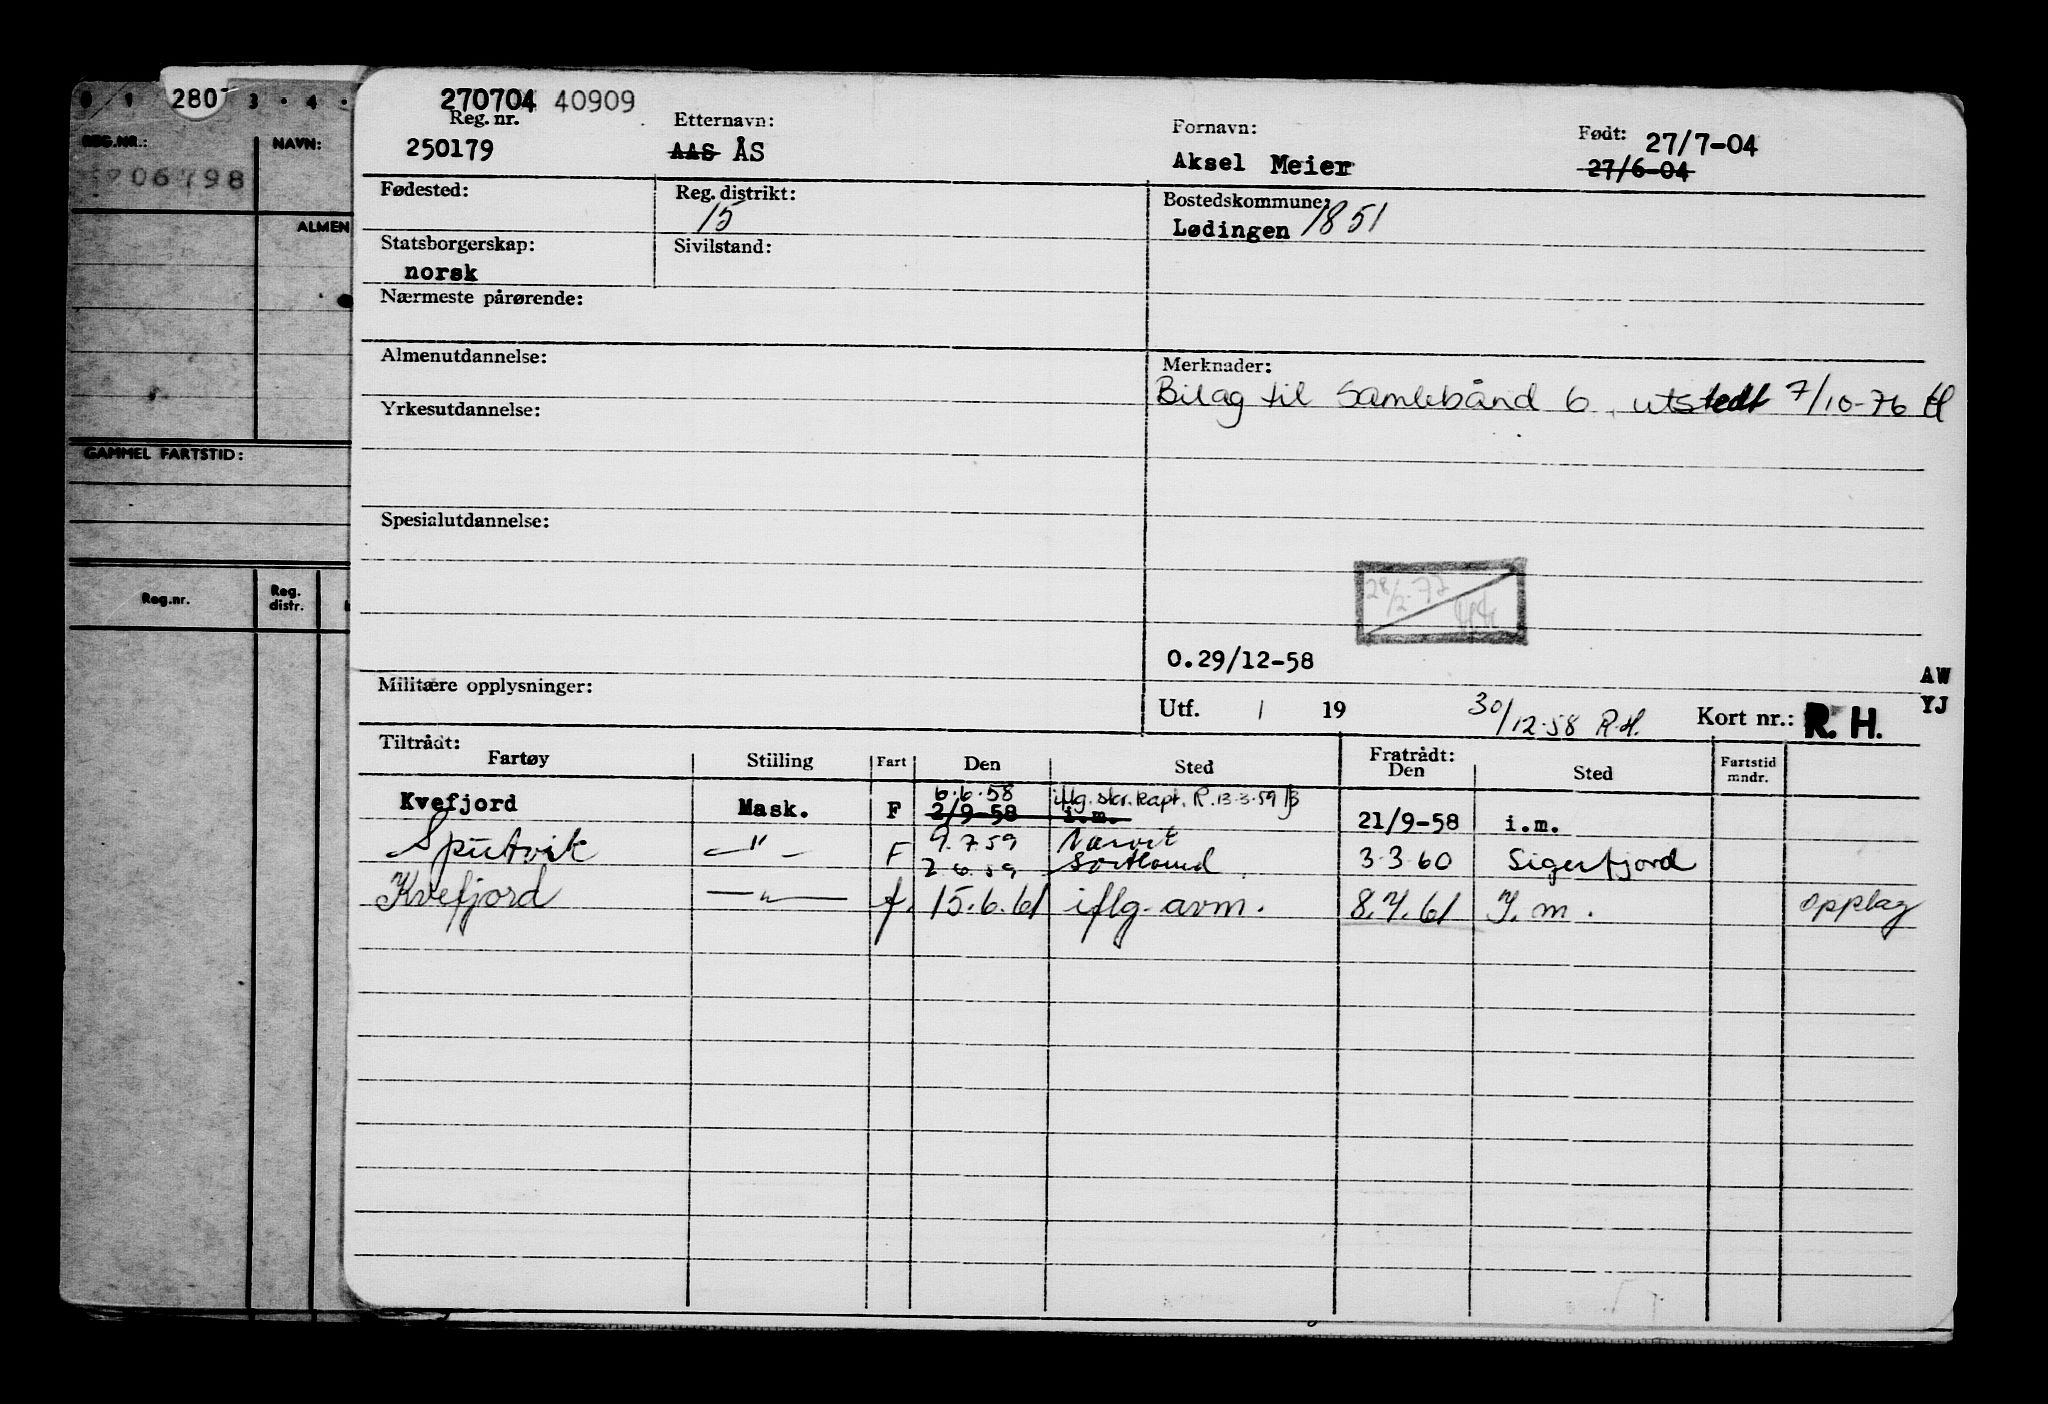 280 3 · 4 ·
REG.NR.:
NAVN:
ALMEN
GAMMEL FARTSTID:
Reg.nr.
Reg. distr.
270704 40909
Reg. nr.
250179
Etternavn:
AAS ÅS
Fornavn:
Aksel Meier
Født: 27/7-04
27/6-04
Fødested:
Reg. distrikt:
15
Bostedskommune:
Lødingen 1851
Statsborgerskap:
norsk
Sivilstand:
Nærmeste pårørende:
Almenutdannelse:
Merknader:
Bilag til Samlebånd 6, utstedt 7/10-76
Yrkesutdannelse:
Spesialutdannelse:
28/2-77
0.29/12-58
Militære opplysninger:
AW
YJ
Utf. / 19 30/12-58 R.H. Kort nr.: R. H.
Tiltrådt:
Fartøy Stilling Fart Den Sted
Fratrådt:
Den Sted
Fartstid mndr.
6.6.58 iflg. skr. kapt. R. 13.3.59
Kvefjord Mask. F 2/9-58 i.m. 21/9-58 i.m.
9.7.59 Narvik
Sputvik — " — F 2.6.59 Sortland 3.3.60 Sigerfjord
Kvefjord — " — f. 15.6.61 iflg. avm. 8.7.61 I.m. opplag